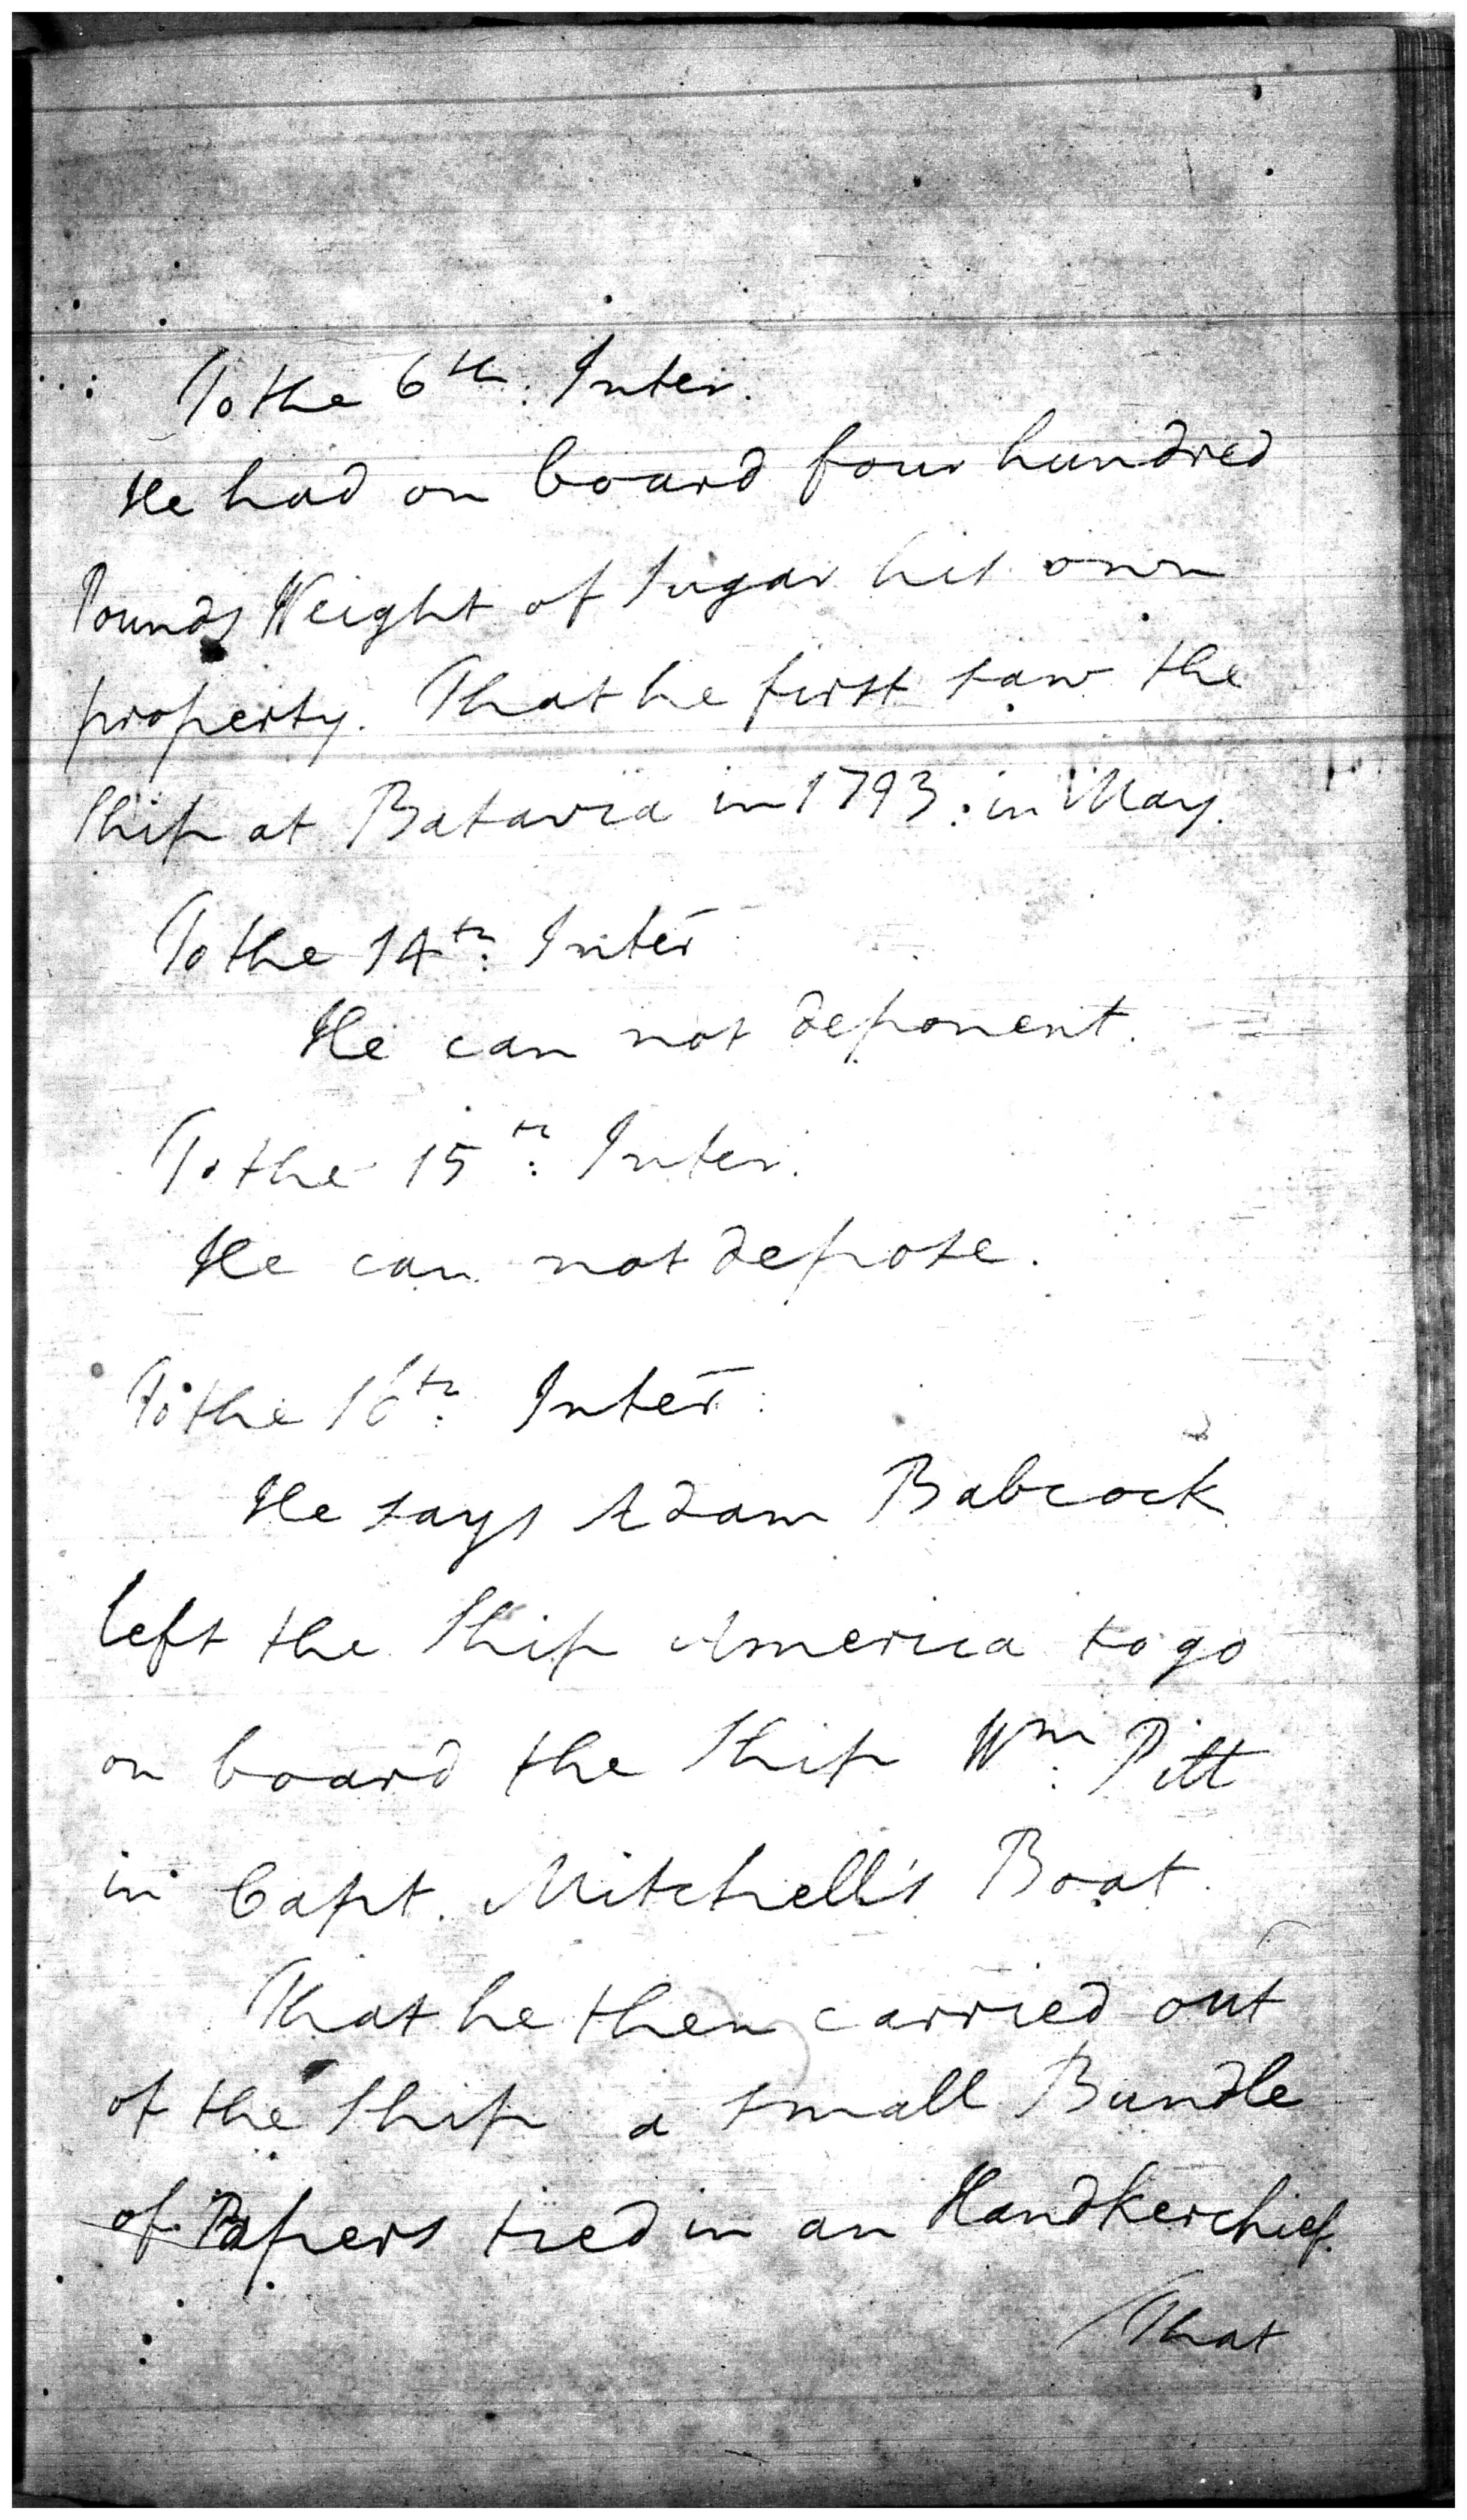 To the 6th. Inter.
He had on board four hundred
Pounds Weight of Sugar his own
property. That he first saw the
Ship at Batavia in 1793: in May.
To the 14th: Inter
He can not deponent.
To the 15th: Inter.
He can not depose.
To the 16th: Inter:
He says Adam Babcock
left the Ship America to go
on board the Ship Wm: Pitt
in Capt. Mitchell's Boat.
That he then carried out
of the Ship a small Bundle
of Papers tied in an Handkerchief.
That